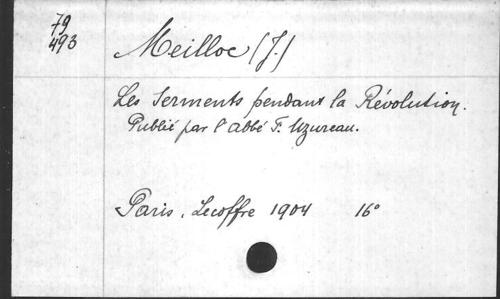 79
493
Meilloc (J.)
Les Serments pendant la Révolution.
Publié par l'abbé F. Uzureau.
Paris. Lecoffre 1904 16°